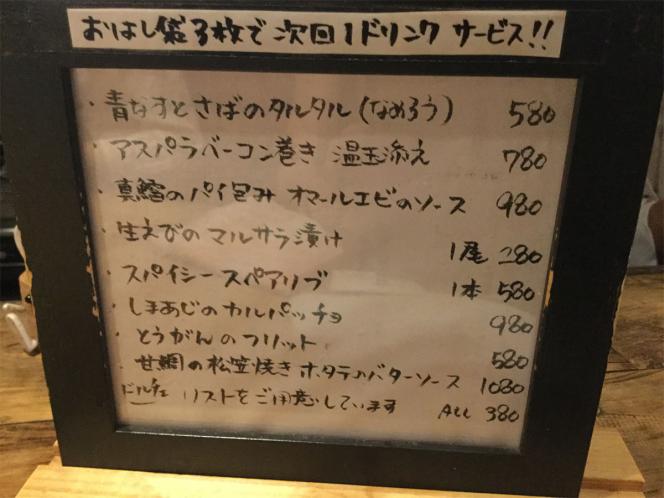 おはし袋3枚で次回1ドリンク サービス!!
・青なすとさばのタルタル(なめろう) 580
・アスパラベーコン巻き 温玉添え 780
・真鱈のパイ包み オマールエビのソース 980
・生えびのマルサラ漬け 1尾 280
・スパイシースペアリブ 1本 580
・しまあじのカルパッチョ 980
・とうがんのフリット 580
・甘鯛の松笠焼き ホタテのバターソース 1080
ドルチェ リストをご用意しています ALL 380